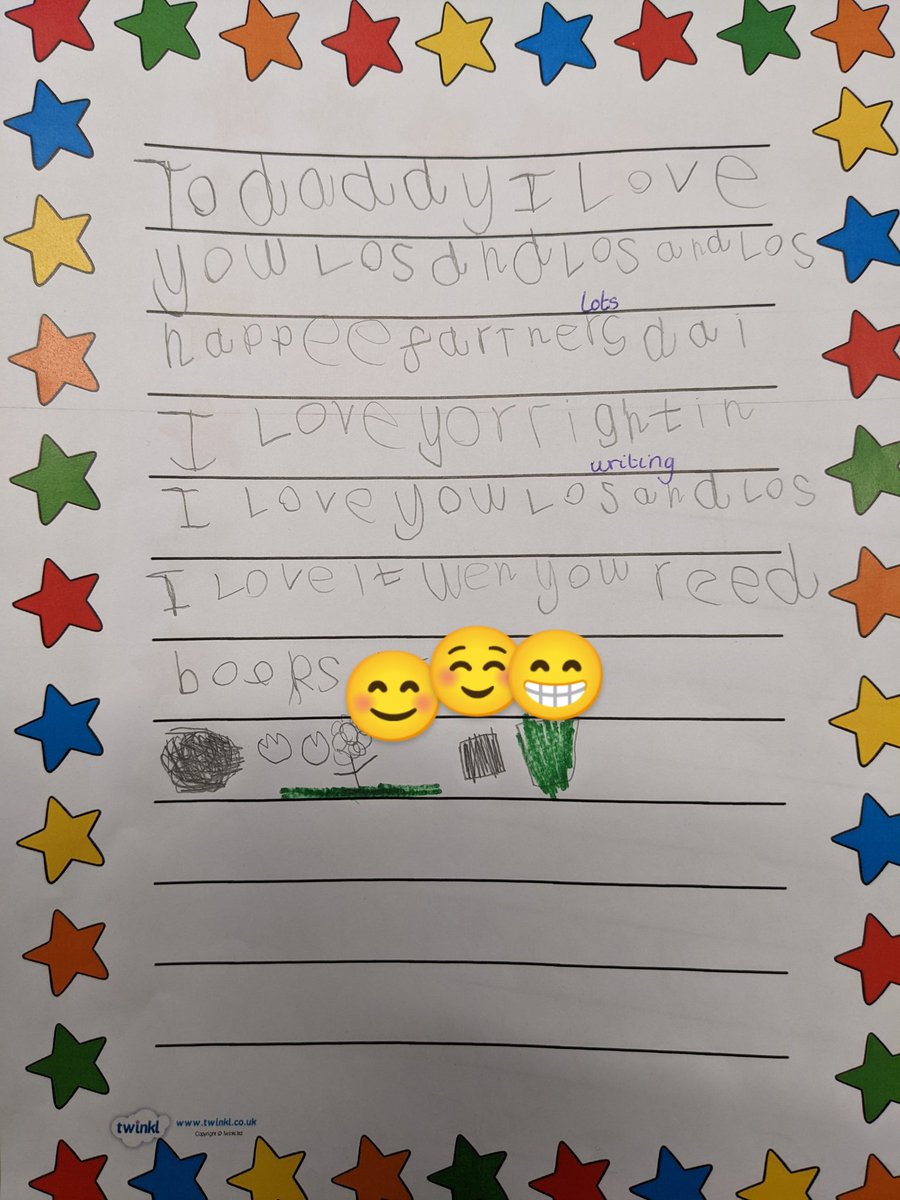 To daddy I Love
you Los and Los and Los
lots
happee fartners dai
I Love yor rightin
writing
I Love you Los and Los
I Love it wen you reed
books
twinkl
www.twinkl.co.uk